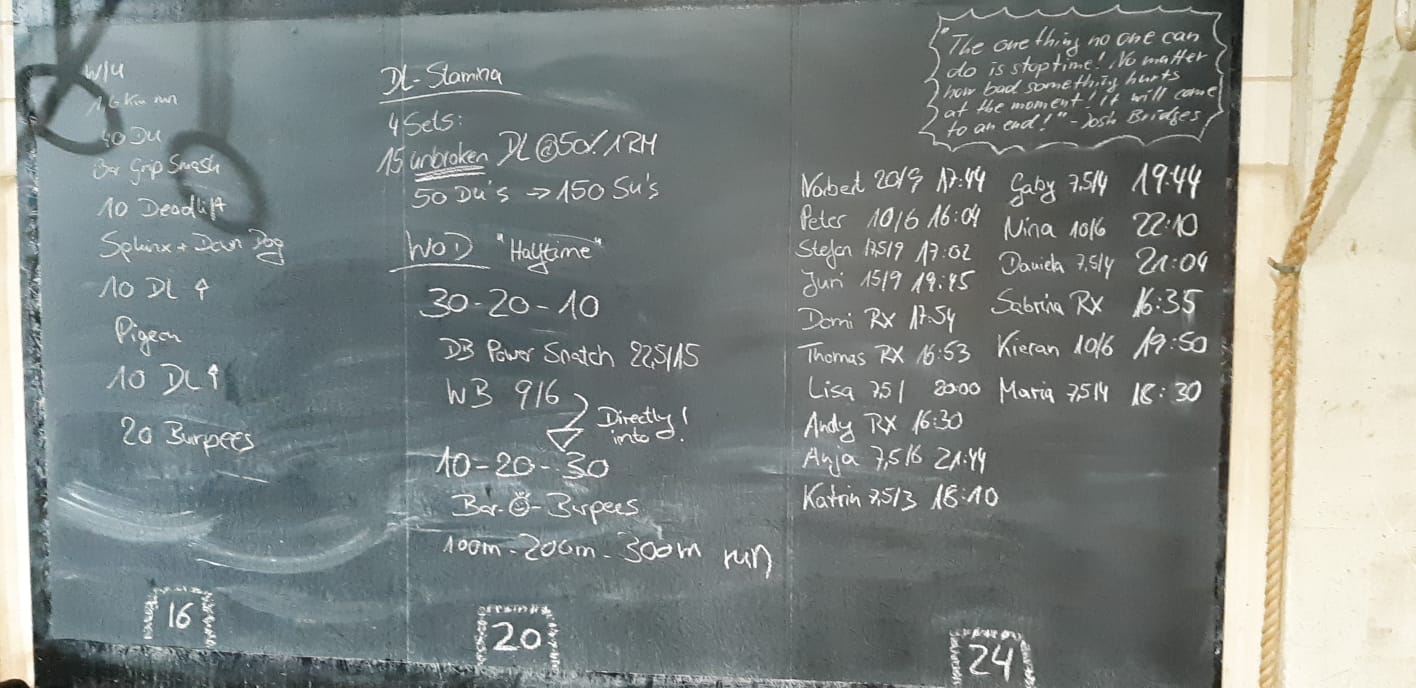 W/U
1,6 Km run
40 DU
Bar Grip Smash
10 Deadlift
Sphinx + Down Dog
10 DL ↑
Pigeon
10 DL ↑
20 Burpees
16
DL-Stamina
4 Sets:
15 unbroken DL @ 50% 1RM
50 DU's → 150 SU's
WOD "Halftime"
30-20-10
DB Power Snatch 22,5/15
WB 9/6
Directly into!
10-20-30
Bar-O-Burpees
100m - 200m - 300m run
20
"The one thing no one can
do is stop time! No matter
how bad something hurts
at the moment! It will come
to an end!" - Josh Bridges
Norbert 20/9 17:44 Gaby 7,5/4 19:44
Peter 10/6 16:04 Nina 10/6 22:10
Stefan 17,5/9 17:02 Daniela 7,5/4 21:04
Juri 15/9 19:45
Domi RX 17:54 Sabrina RX 16:35
Thomas RX 16:53 Kieran 10/6 19:50
Lisa 7,5/ 20:00 Maria 7,5/4 18:30
Andy RX 16:30
Anja 7,5/6 21:44
Katrin 7,5/3 18:10
24